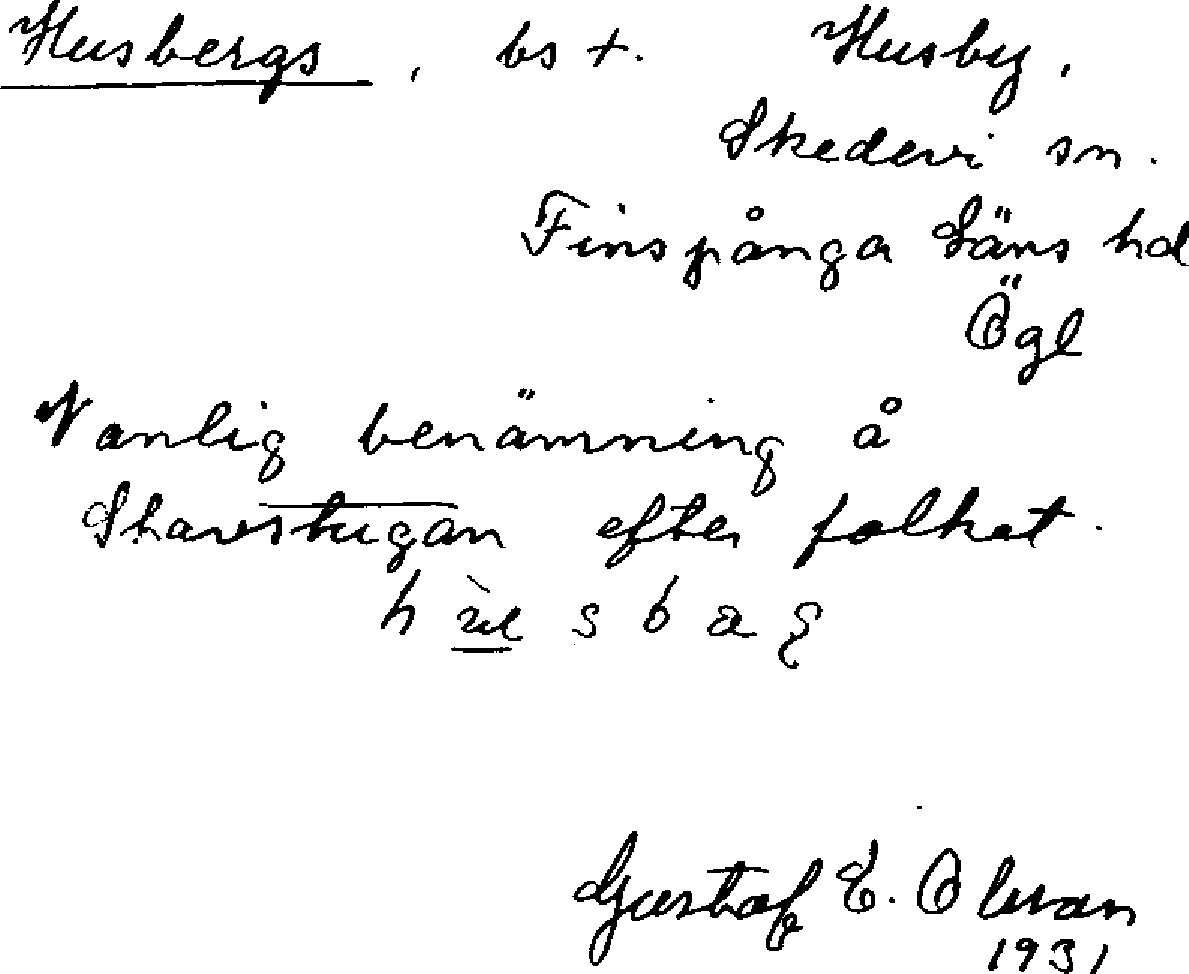 Husbergs, bs +. Husby,
Skedevi sn.
Finspånga Läns hd
Ögl
Vanlig benämning å
Skarstugan efter folket.
Gustaf E. Olsson
1931